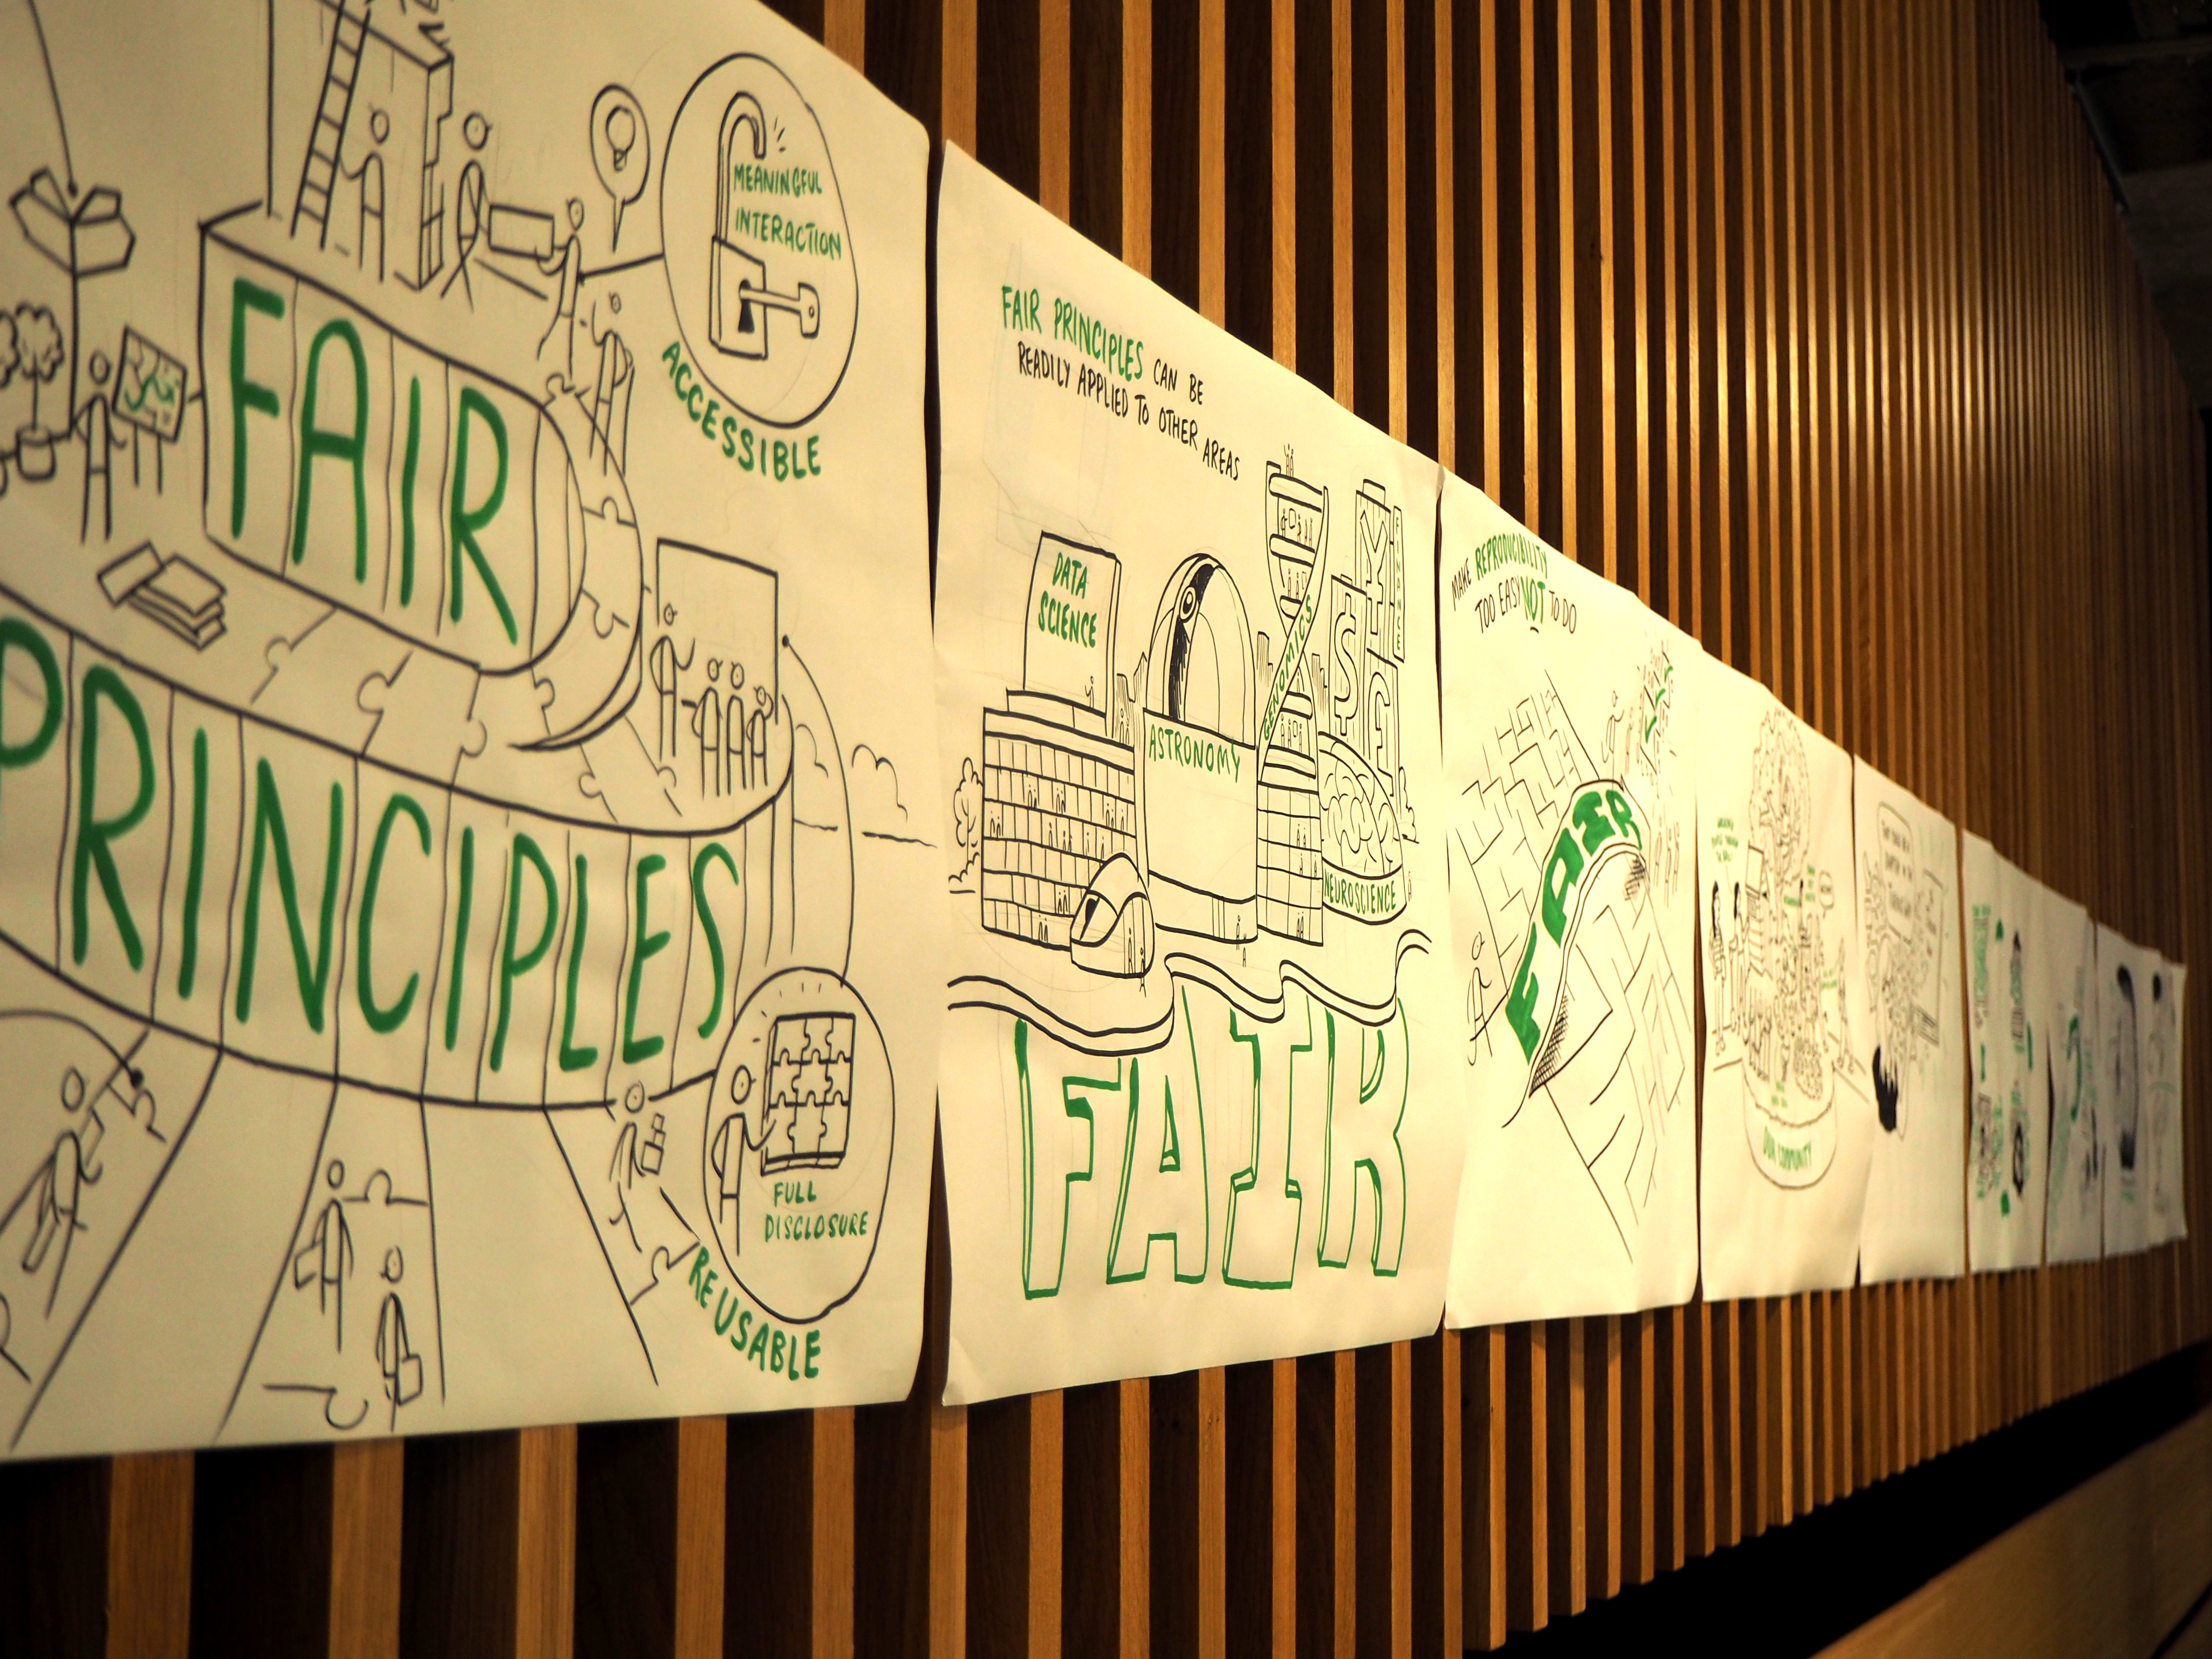 MEANINGFUL
INTERACTION
ACCESSIBLE
FAIR
PRINCIPLES
FULL
DISCLOSURE
REUSABLE
FAIR PRINCIPLES CAN BE
READILY APPLIED TO OTHER AREAS
DATA
SCIENCE
ASTRONOMY
GENOMICS
FINANCE
NEUROSCIENCE
FAIR
MAKE REPRODUCIBILITY
TOO EASY NOT TO DO
FAIR
OUR COMMUNITY